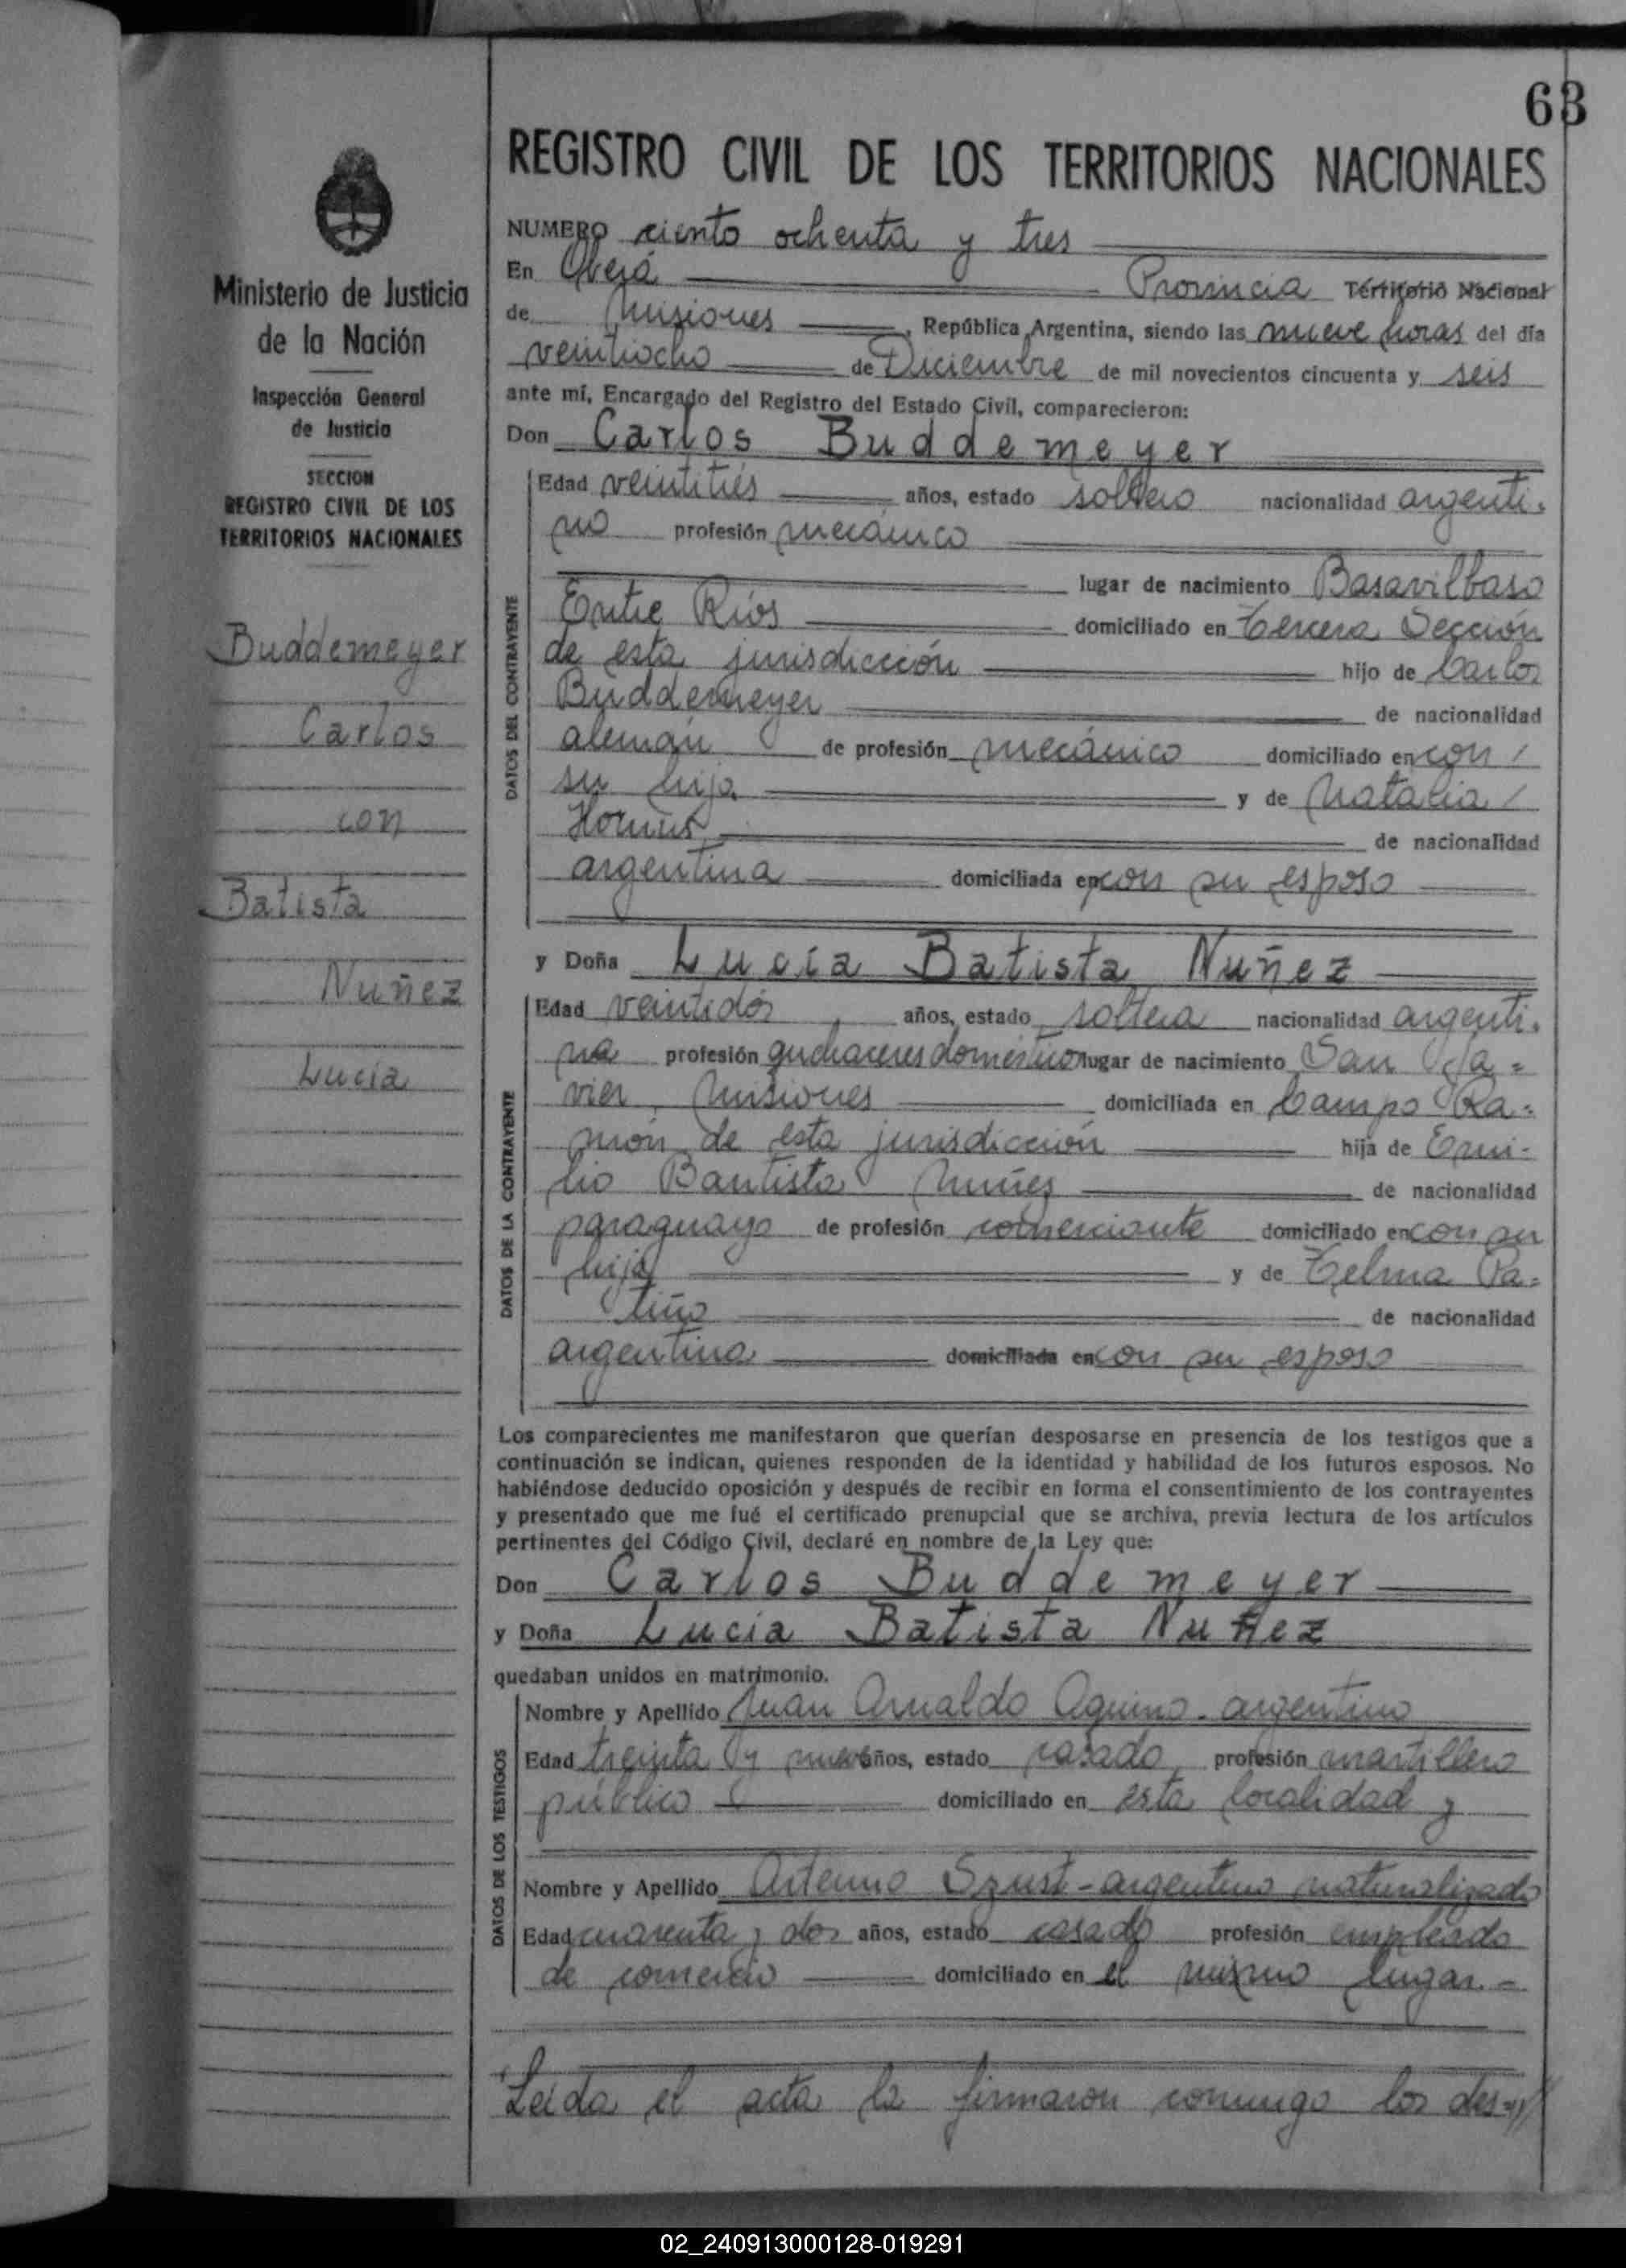 63
REGISTRO CIVIL DE LOS TERRITORIOS NACIONALES
NUMERO ciento ochenta y tres
En Oberá Provincia Territorio Nacional
de Misiones, República Argentina, siendo las nueve horas del día
veintiocho de Diciembre de mil novecientos cincuenta y seis
ante mí, Encargado del Registro del Estado Civil, comparecieron:
Don Carlos Buddemeyer
DATOS DEL CONTRAYENTE
Edad veintitrés años, estado soltero nacionalidad argenti-
no profesión mecánico
lugar de nacimiento Basavilbaso
Entre Ríos domiciliado en Tercera Sección
de esta jurisdicción hijo de Carlos
Buddemeyer de nacionalidad
alemán de profesión mecánico domiciliado en con
su hijo y de Natalia
de nacionalidad
argentina domiciliada en con su esposo
y Doña Lucía Batista Nuñez
DATOS DE LA CONTRAYENTE
Edad veintidós años, estado soltera nacionalidad argenti-
na profesión quehaceres domésticos lugar de nacimiento San Ja=
vier, Misiones domiciliada en Campo Ra=
món de esta jurisdicción hija de Emi-
lio Bautista Nuñes de nacionalidad
paraguayo de profesión comerciante domiciliado en con su
hija y de Telma Pa=
tiño de nacionalidad
argentina domiciliada en con su esposo
Los comparecientes me manifestaron que querían desposarse en presencia de los testigos que a
continuación se indican, quienes responden de la identidad y habilidad de los futuros esposos. No
habiéndose deducido oposición y después de recibir en forma el consentimiento de los contrayentes
y presentado que me fué el certificado prenupcial que se archiva, previa lectura de los artículos
pertinentes del Código Civil, declaré en nombre de la Ley que:
Don Carlos Buddemeyer
y Doña Lucía Batista Nuñez
quedaban unidos en matrimonio.
DATOS DE LOS TESTIGOS
Nombre y Apellido Juan Arnaldo Aquino - argentino
Edad treinta y nueve años, estado casado profesión martillero
público domiciliado en esta localidad y
Nombre y Apellido Artemio Szust - argentino naturalizado
Edad cuarenta y dos años, estado casado profesión empleado
de comercio domiciliado en el mismo lugar.-
Leída el acta la firmaron conmigo los des-//
Ministerio de Justicia
de la Nación
Inspección General
de Justicia
SECCION
REGISTRO CIVIL DE LOS
TERRITORIOS NACIONALES
Buddemeyer
Carlos
con
Batista
Nuñez
Lucía
02_240913000128-019291